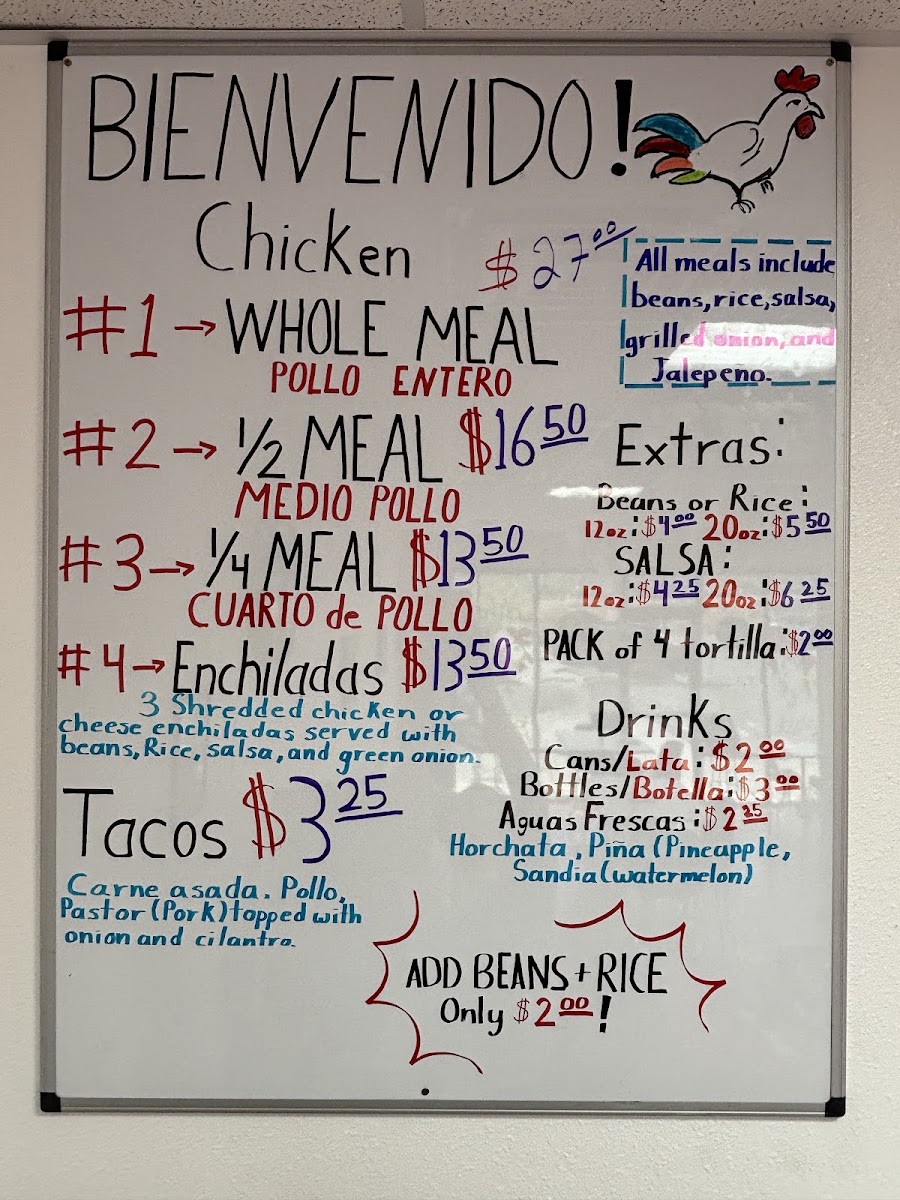 BIENVENIDO!
Chicken
$27.00
#1 → WHOLE MEAL
POLLO ENTERO
#2 → 1/2 MEAL $16.50
MEDIO POLLO
#3 → 1/4 MEAL $13.50
CUARTO de POLLO
#4 → Enchiladas $13.50
3 Shredded chicken or
cheese enchiladas served with
beans, Rice, salsa, and green onion.
Tacos $3.25
Carne asada. Pollo,
Pastor (Pork) topped with
onion and cilantro.
All meals include
beans, rice, salsa,
grilled onion, and
Jalepeno.
Extras:
Beans or Rice:
12oz: $4.00 20oz: $5.50
SALSA:
12oz: $4.25 20oz: $6.25
PACK of 4 tortilla: $2.00
Drinks
Cans/Lata: $2.00
Bottles/Botella: $3.00
Aguas Frescas: $2.25
Horchata, Piña (Pineapple,
Sandia (watermelon)
ADD BEANS + RICE
Only $2.00!